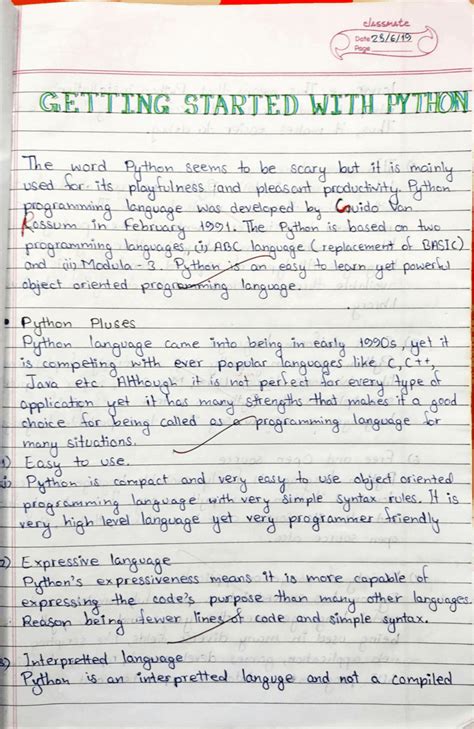 classmate
Date 25/6/19
Page
GETTING STARTED WITH PYTHON
The word Python seems to be scary but it is mainly
used for its playfulness and pleasant productivity. Python
programming language was developed by Guido Van
Rossum in February 1991. The Python is based on two
programming languages, (i) ABC language (replacement of BASIC)
and (ii) Modula - 3. Python is an easy to learn yet powerful
object oriented programming language.
• Python Pluses
Python language came into being in early 1990s, yet it
is competing with ever popular languages like C, C++,
Java etc. Although it is not perfect for every type of
application yet it has many strengths that makes it a good
choice for being called as a programming language for
many situations.
1) Easy to use.
i) Python is compact and very easy to use object oriented
programming language with very simple syntax rules. It is
very high level language yet very programmer friendly
2) Expressive language
Python's expressiveness means it is more capable of
expressing the code's purpose than many other languages.
Reason being fewer lines of code and simple syntax.
3) Interpretted language
Python is an interpretted languge and not a compiled